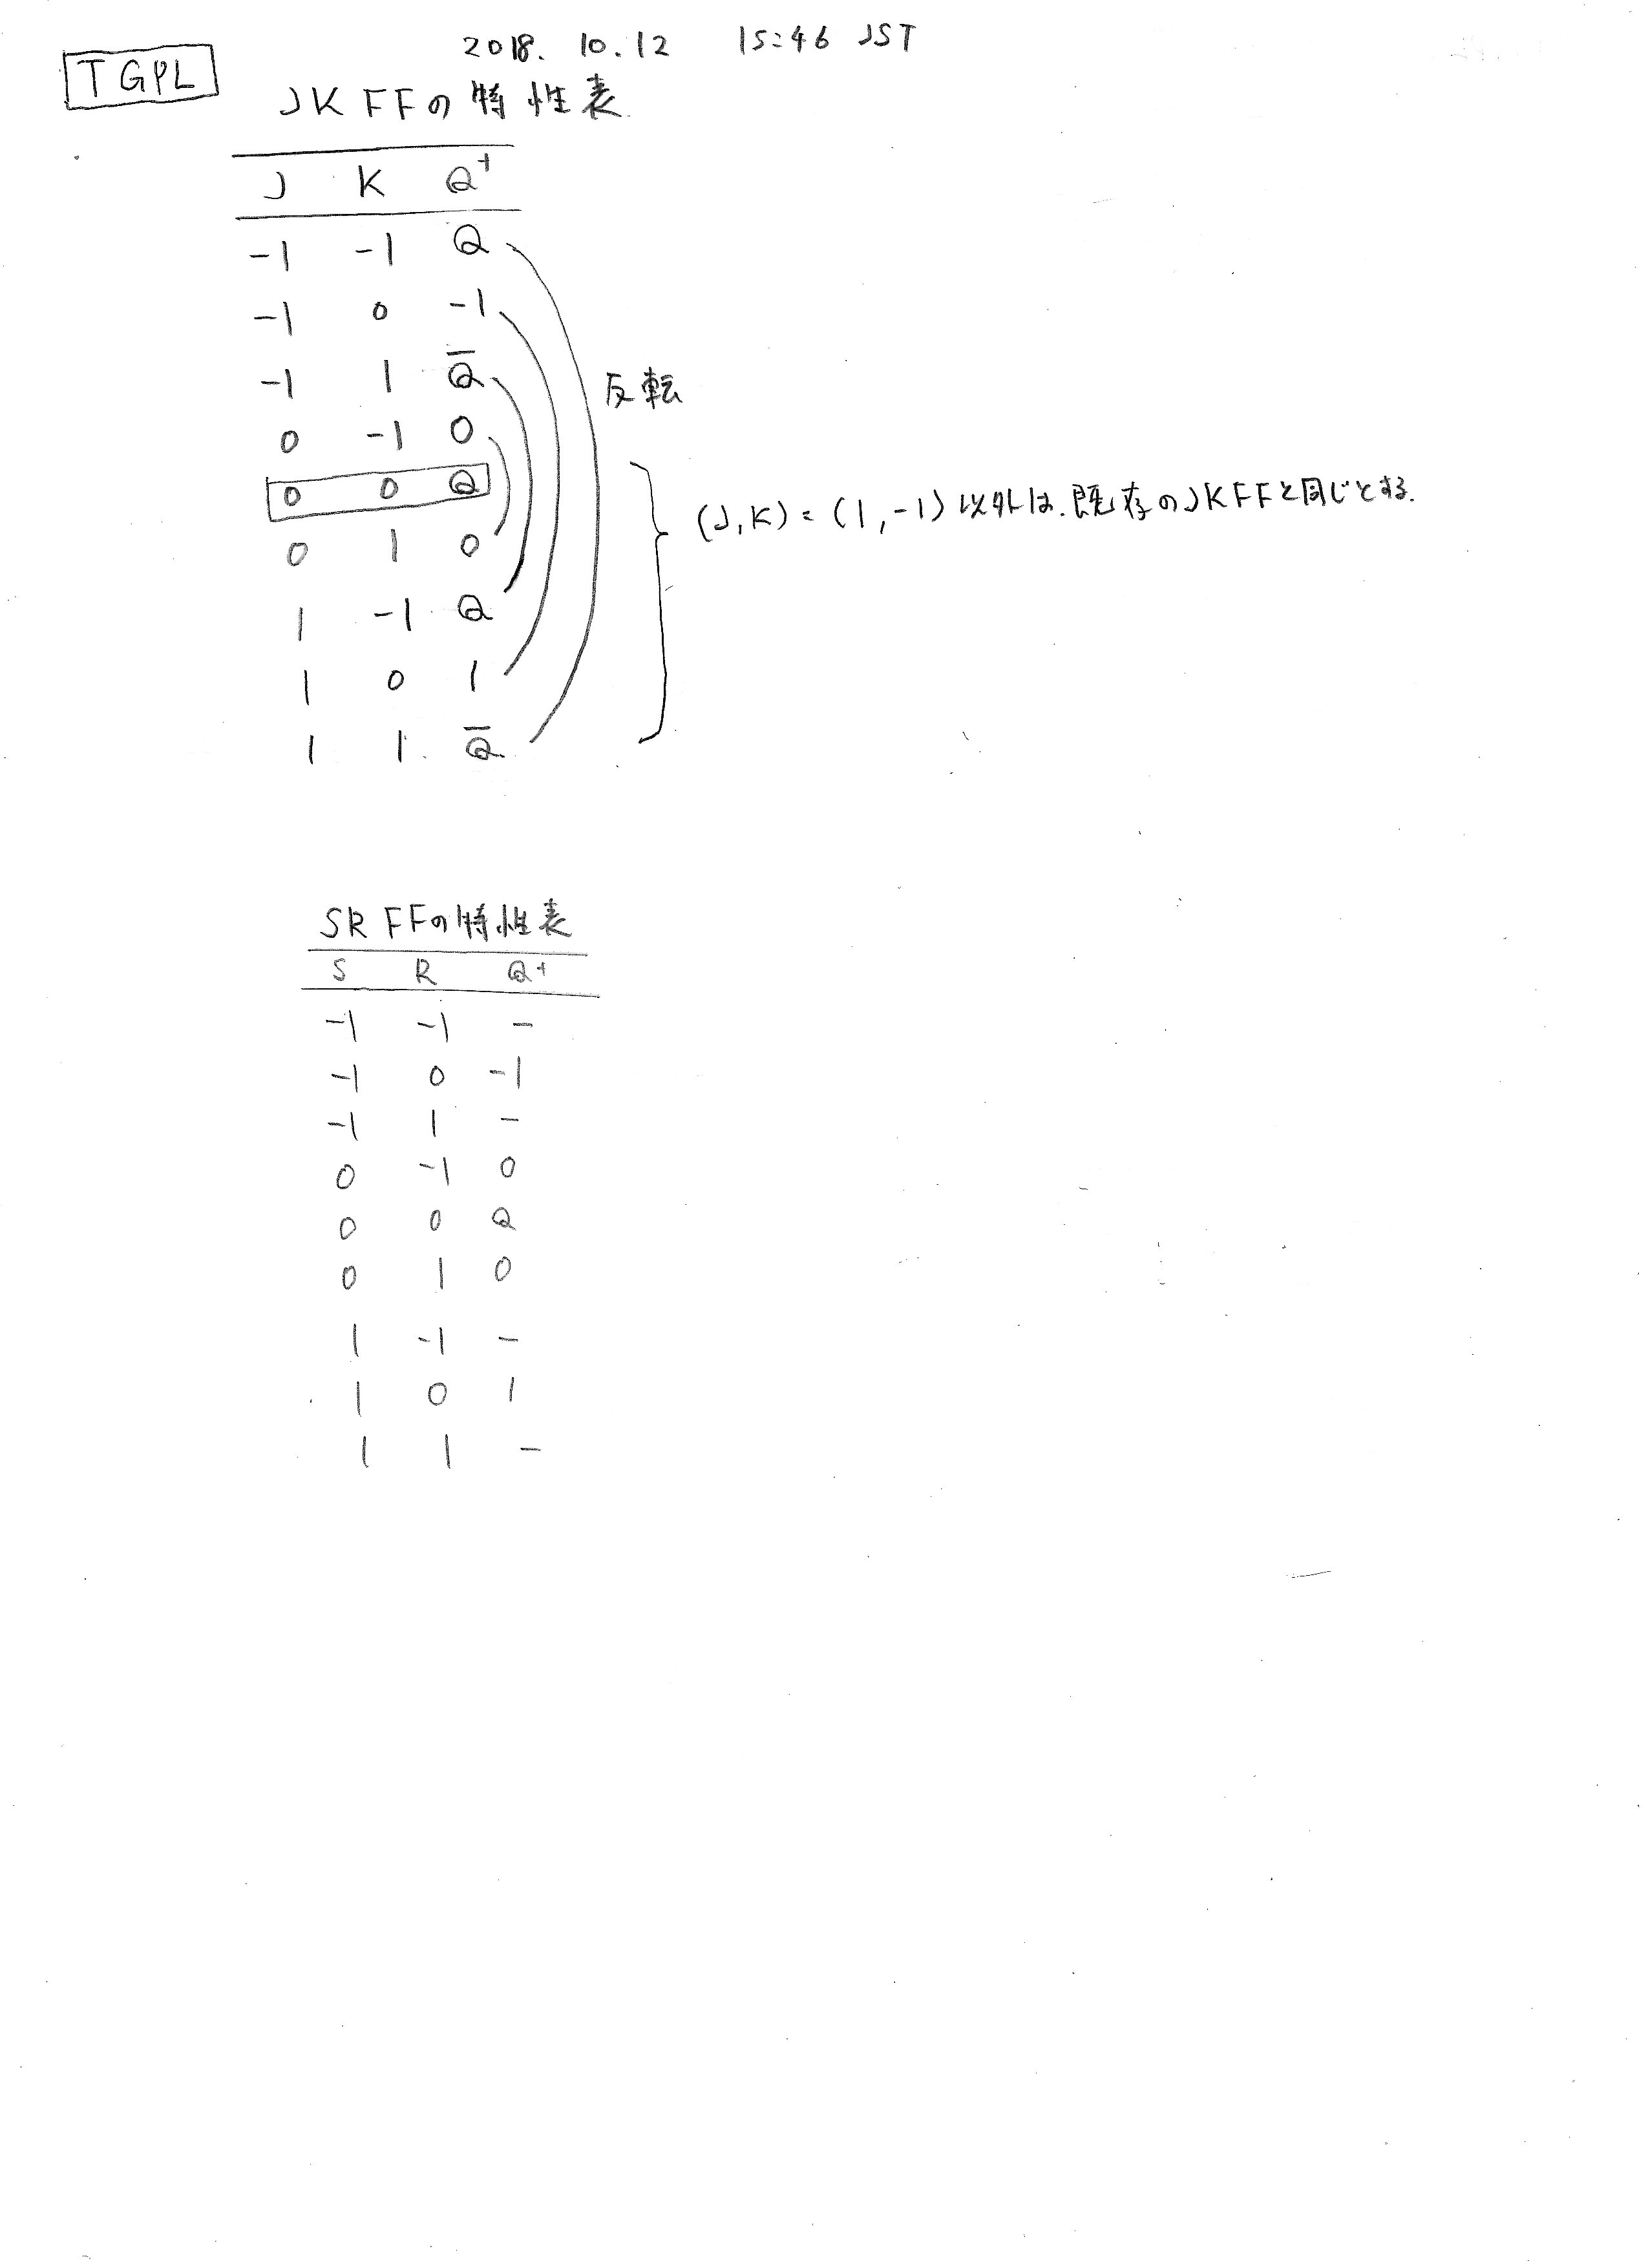 2018. 10.12 15:46 JST
TGPL
JK FFの特性表
J K Q⁺
-1 -1 Q
-1 0 -1
-1 1 Q̅
0 -1 0
0 0 Q
0 1 0
1 -1 Q
1 0 1
1 1 Q̅
反転
(J,K)=(1,-1)以外は.既存のJKFFと同じとする.
SR FFの特性表
S R Q+
-1 -1 -
-1 0 -1
-1 1 -
0 -1 0
0 0 Q
0 1 0
1 -1 -
1 0 1
1 1 -